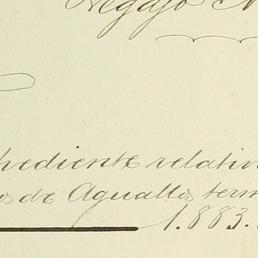 Negdjo N
pediente relativ
os de Aguallos term
1.883.